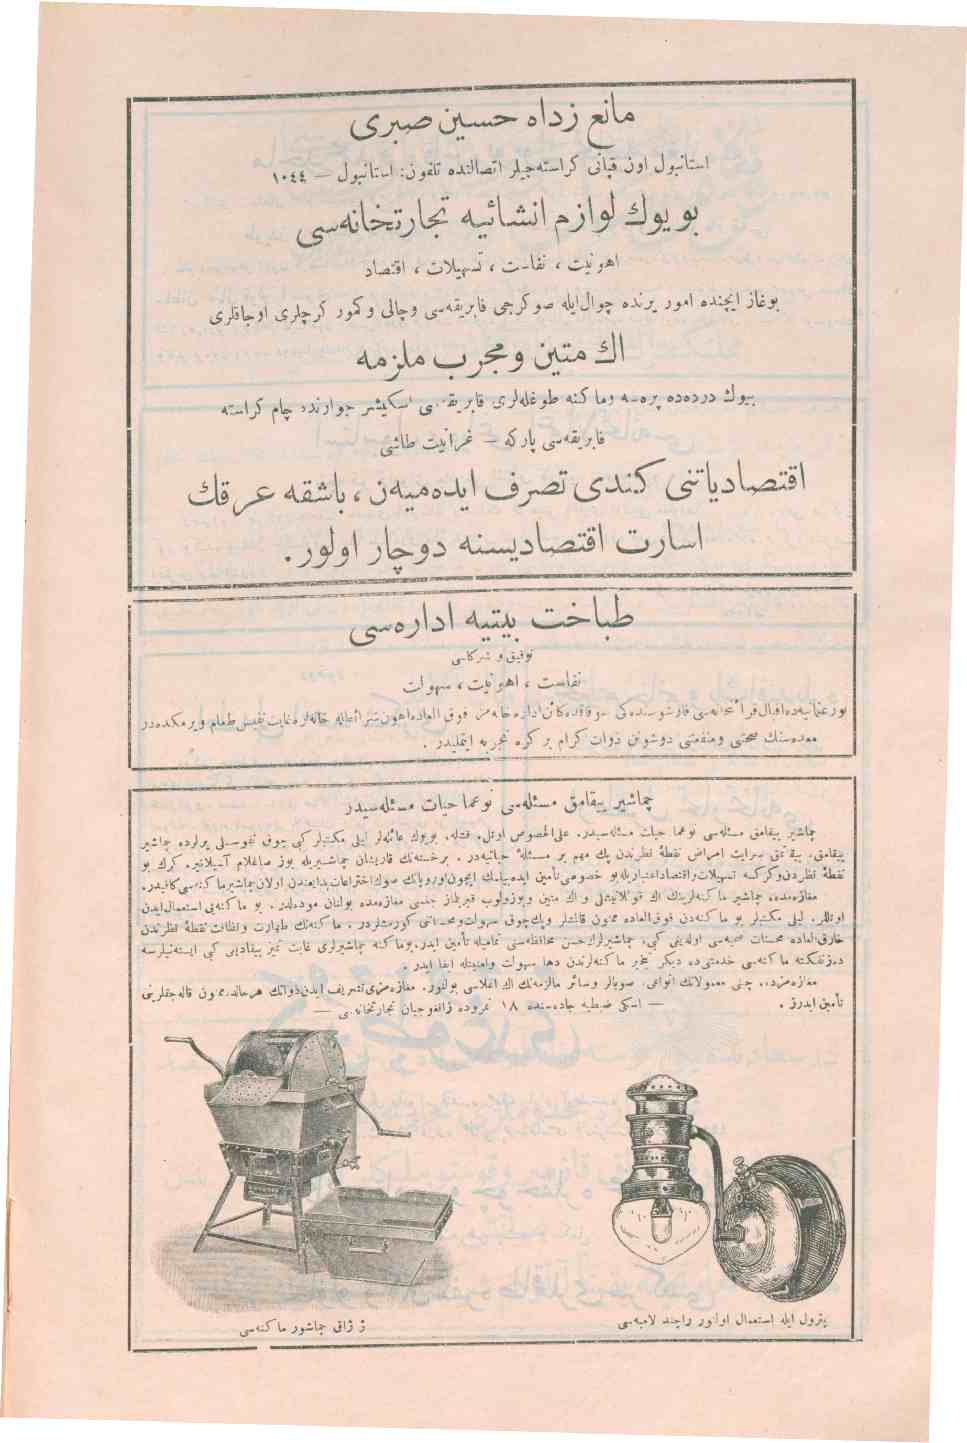 مانع زداه حسين صبرى
استانبول اون قپانى كراسته‌جيلر اتصالنده تلفون: استانبول — ١٠٤٤
بو يوك لوازم انشائيه تجارتخانه‌سى
اهونيت ، نفاست ، تسهيلات ، اقتصاد
بوغاز ايچنده امور يرنده چوال‌ايله صوكرجى فابريقه‌سى وچالى وكمور كرچلرى اوجاقلرى
اك متين ومجرب ملزمه
بيوك دردده پره‌سه وماكنه طوغله‌لرى فابريقه‌سى اسكيشهر جوارنده چام كراسته
فابريقه‌سى پاركه — غرانيت طاشى
اقتصادياتنى كندى تصرف ايده‌ميه‌ن ، باشقه عرقك
اسارت اقتصاديسنه دوچار اولور .
طباخت بيتيه اداره‌سى
توفيق و شركاسى
نفاست ، اهونيت ، سهولت
نورعثمانيه‌ده اقبال قرائتخانه‌سى قارشوسنده‌كى سوقاقده كائن اداره‌خانه‌مز فوق العاده اهون شرائطله خانه‌لره غايت نفيس طعام ويرمكده‌در
معده‌سنك صحتى ومنفعتى دوشونن ذوات كرام بر كره تجربه ايتمليدر .
چماشير ييقامق مسئله‌سى نوعما حيات مسئله‌سيدر
چماشير ييقامق مسئله‌سى نوعما حيات مسئله‌سيدر. على‌الخصوص اوتل، قشله، بويوك عائله‌لر ليلى مكتبلر كبى چوق نفوسلى يرلرده چماشير
ييقامق، سرايت امراض نقطۀ نظرندن پك مهم بر مسئلۀ حياتيه‌در .
نقطۀ نظردن وكركسه تسهيلات واقتصاد اعتباريله بو خصوصى تأمين ايده‌بيلمك ايچون اوروپانك صوك اختراعات بديعه‌سندن اولان چماشير ماكنه‌سى كافيدر.
مغازه‌مده، چماشير ماكنه‌لرينك اك قوللانيشلى و اك متين وبوزولوب قيريلماز جنسى مغازه‌مده بولنان موده‌لدر. بو ماكنه‌يى استعمال ايدن
اوتللر، ليلى مكتبلر بو ماكنه‌دن فوق العاده ممنون قالمشلر وپك چوق سهولت ومحسناتى كورمشلردر . ماكنه‌نك طهارت ونظافت نقطۀ نظرندن
خارق العاده محسنات صحيه‌سى اوله‌يغى كبى، چماشيرلرك حسن محافظه‌سنى تماميله تأمين ايدر. بو ماكنه چماشيرلرى غايت تميز ييقاديغى كبى ايسته‌نيلرسه
ديكر تبخير ماكنه‌لرندن دها سهولت وامنيتله ايفا ايدر .
مغازه‌مزده، چنى معمولاتك انواعى، صوبالر وسائر مالزمه‌نك اك اعلاسى بولنور. مغازه‌مزى تشريف ايدن ذواتك هر حالده ممنون قاله‌جقلرينى
تأمين ايدرز . — اسكى ضبطيه جاده‌سنده ١٨ نمروده ژاغوجيان تجارتخانه‌سى —
ژ ژاق چماشور ماكنه‌سى
پترول ايله استعمال اولنور راچند لامبه‌سى